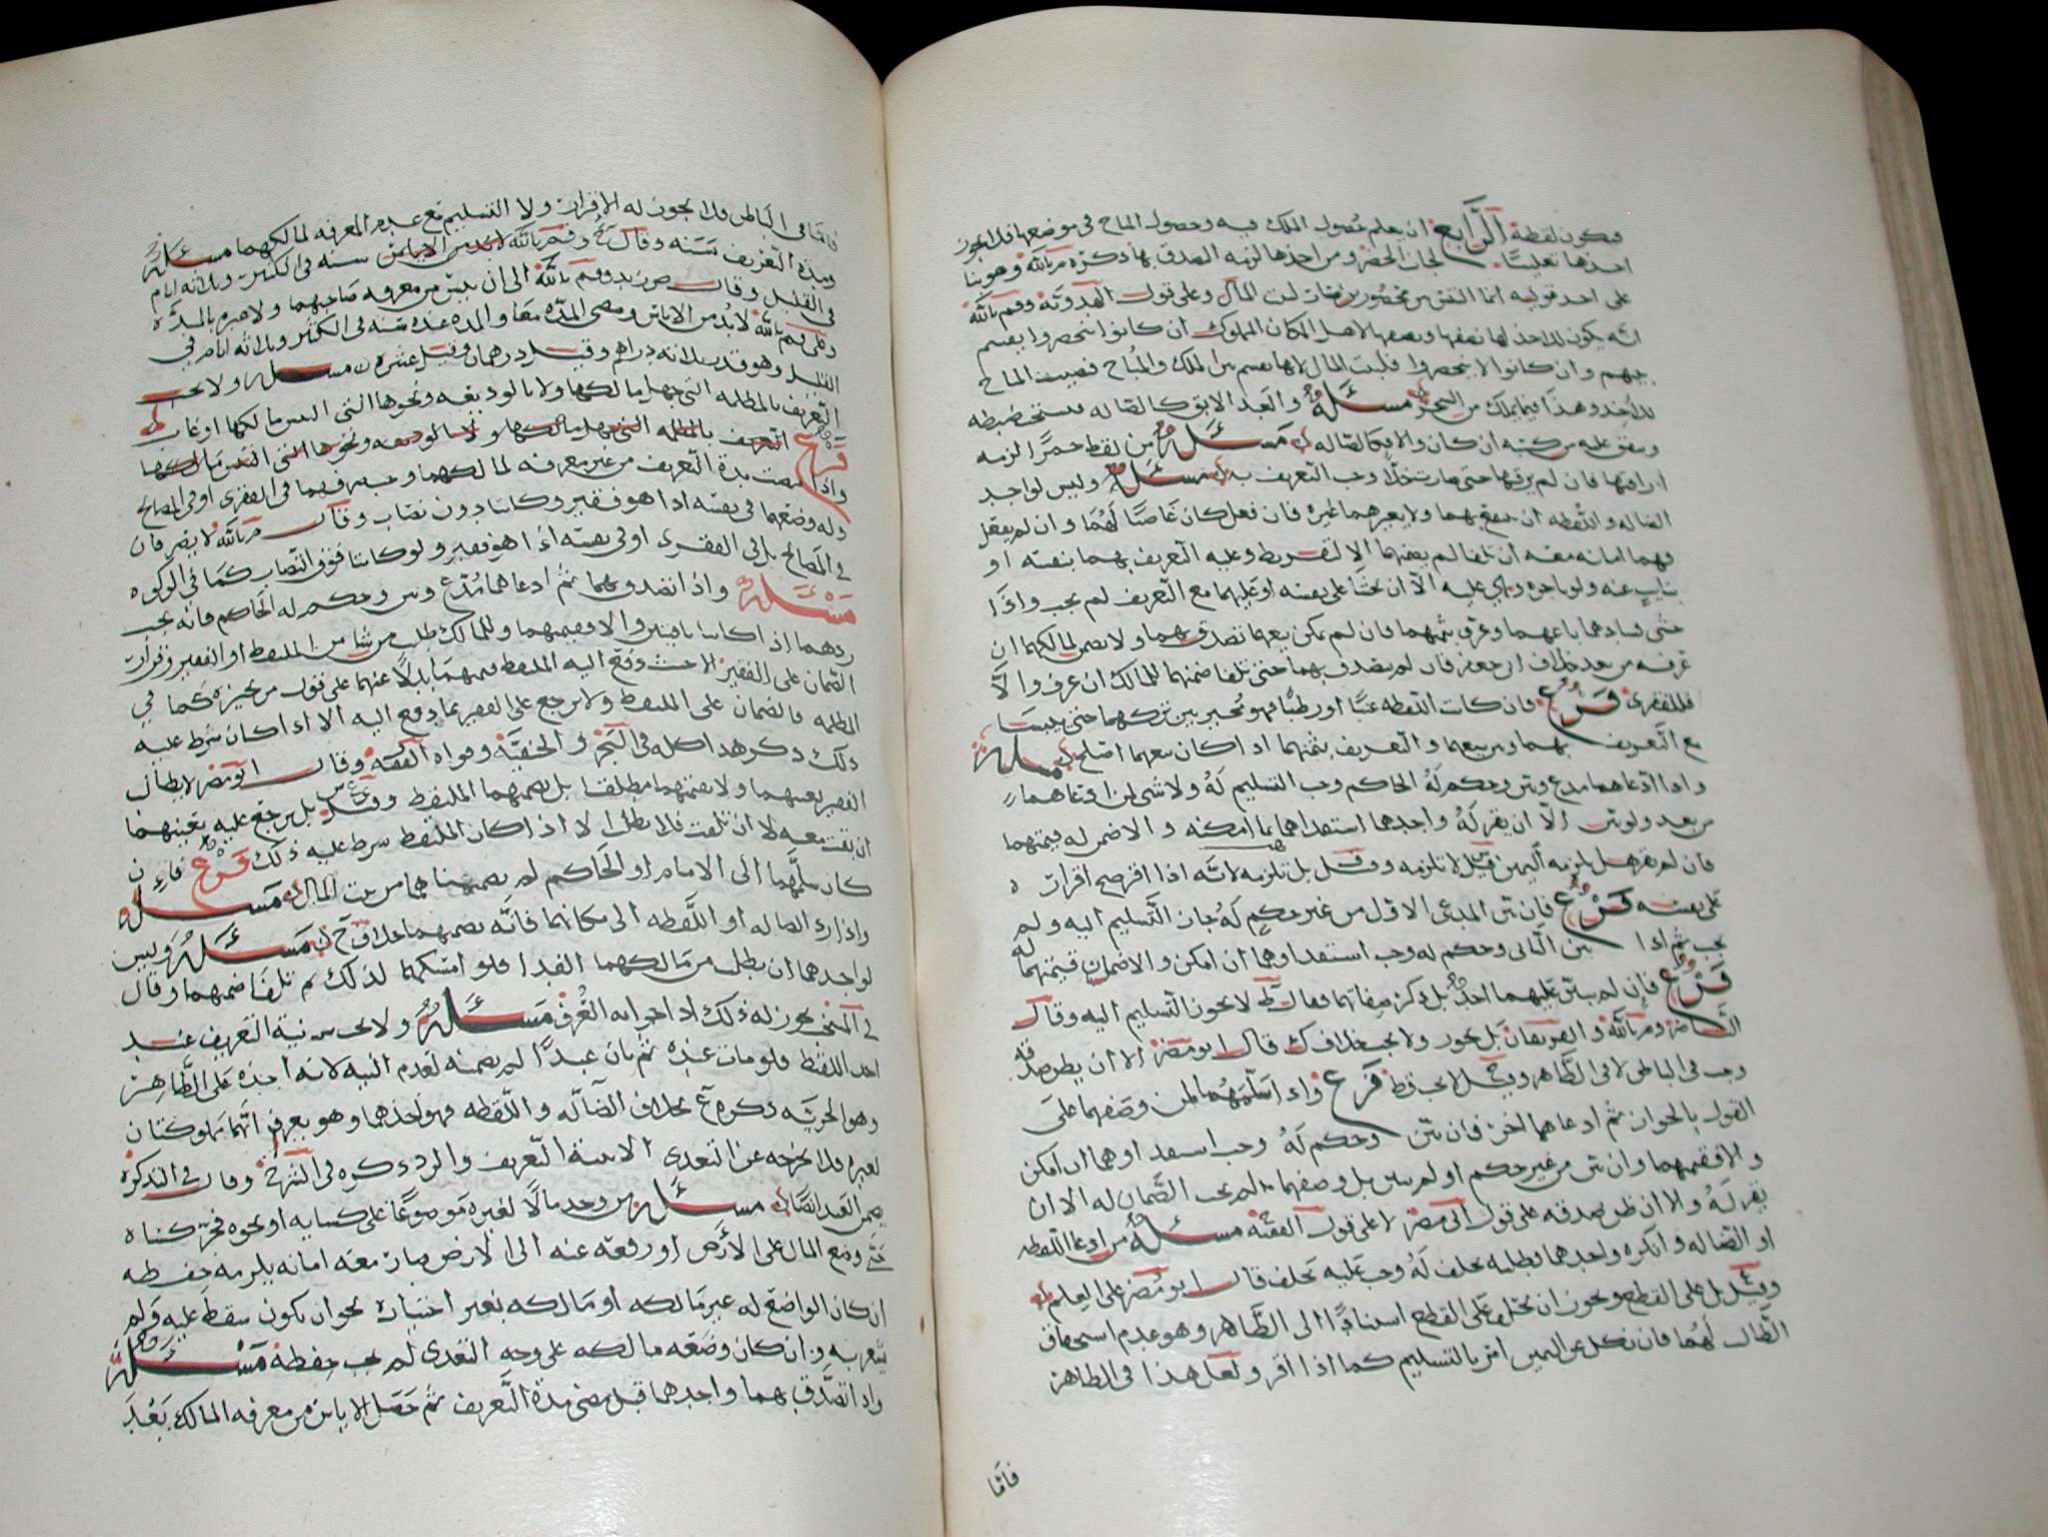 فتكون لقطة الرابع ان يعلم حصول الملك فيه وحصول المباح في موضعها فلا يجوز
احدها تغليبا لجانب الحضر ومن اخذها لزمه التصدق بها ذكره م بالله وهو بنا
على احد قوليه
انه يكون للاخذ لها نصفها ونصفها لاهل المكان المملوك ان كانوا ينحصروا يقسم
بينهم وان كانوا لا ينحصروا فلبيت المال لانها تقسم بين الملك والمباح فنصيب المباح
للاخذ وهذا فيما يملك من البحر مسئلة والعبد الابق كالضاله يستحب ضبطه
وينفق عليه من كسبه ان كان والا فكالضاله مسئلة من لقط خمرا لزمه
اراقتها فان لم يرقها حتى صارت خلا وجب التعريف به مسئلة وليس لواجد
الضاله واللقطه ان ينتفع بهما ولا يعيرهما غيره فان فعل كان غاصبا لهما وان لم يفعل
فهما امانه معه ان تلفا لم يضمنهما الا لتفريط وعليه التعريف بهما بنفسه او
بنايب عنه ولو باجره وهي عليه الا ان يخشا على نفسه او عليهما مع التعريف لم يجب واذا
خشي فسادهما باعهما وعرف بثمنهما فان لم يمكن بيعهما تصدق بهما ولا يضمن لمالكهما ان
عرفه من بعد خلاف ابي جعفر فان لم يتصدق بهما حتى تلفا ضمنهما للمالك ان عرف والا
فللفقرى فرع فان كانت اللقطه عنبا او رطبا فهو مخير بين تركهما حتى ييبسا
مع التعريف بهما وبين بيعهما والتعريف بثمنهما اذا كان بيعهما اصلح مسئلة
واذا ادعاهما مدع وبين وحكم له الحاكم وجب التسليم له ولا شي لمن ادعاهما
من بعد ولو بين الا ان يقر له واجدهما استفداهما بما امكنه والا ضمن له قيمتهما
فان لم يقر هل يلزمه اليمين قيل لا تلزمه وقيل بل تلزمه لانه اذا اقر صح اقراره
على نفسه فرع فان بين المدعي الاول من غير حكم له جاز التسليم اليه ولم
يجب ثم اذا بين الثاني وحكم له وجب استفداوهما ان امكن والا ضمن له قيمتهما
فرع فان لم يبين عليهما احد بل ذكر صفاتهما فقال ط لا يجوز التسليم اليه وقال
الناصر وم بالله والفريقان بل يجوز ولا يجب خلاف ك قال ابو مضر الا ان يظن صدقه
وجب في الباطن لا في الظاهر وقيل لا يجب قط فرع واذا سلمهما لمن وصفهما على
القول بالجواز ثم ادعاهما اخر فان بين وحكم له وجب استفداوهما ان امكن
والا قيمتهما وان بين من غير حكم او لم يبين بل وصفهما لم يجب الضمان له الا ان
يقر له والا ان ظن صدقه على قول ابي مضر لا على قول الفقيه مسئلة من ادعا اللقطه
او الضاله وانكره واجدهما فطلبه يحلف له وجب عليه يحلف قال ابو مضر على العلم
وقيل بل على القطع ويجوز ان يحلف على القطع استنادا الى الظاهر وهو عدم استحقاق
الطالب لهما فان نكل عن اليمين امر بالتسليم كما اذا اقر ولعل هذا في الظاهر
فاما
فاما في الباطن فلا يجوز له الاقرار ولا التسليم مع عدم المعرفه لمالكهما مسئلة
ومدة التعريف سنه وقال
في القليل وقال ص زيد وقم بالله الى ان ييئس من معرفه صاحبهما ولا عبره بالمده
وعلى قم بالله لا بد من الاياس ومضي المدة معا والمده عنده سنه في الكثير وثلاثه ايام في
القليل وهو قدر ثلاثه دراهم وقيل درهمان وقيل عشره مسئلة ولا يجب
التعريف بالمظلمه التي جهل مالكها ولا بالوديعه ونحوها التي التبس مالكها او غاب
فرع التعريف بالمظلمه التي جهل مالكها ولا بالوديعه ونحوها التي التبس مالكها
واذا مضت مدة التعريف من غير معرفه لمالكهما وجب صرفهما في الفقرى او في المصالح
وله وضعهما في نفسه اذا هو فقير وكانتا دون نصاب وقال م بالله لا يصرفان
في المصالح بل في الفقرى او في نفسه اذا هو فقير ولو كانتا فوق النصاب كما في الزكوه
مسئلة واذا تصدق بهما ثم ادعاهما مدع وبين وحكم له الحاكم فانه يجب
ردهما اذا كانتا باقيتين والا قيمتهما وللمالك طلب من شا من الملتقط او الفقير وقرار
الضمان على الفقير الا حيث دفع اليه الملتقط قيمتهما بدلا عنهما على قول من يجيزه كما في
المظلمه فالضمان على الملتقط ولا يرجع على الفقير بما دفع اليه الا اذا كان شرط عليه
ذلك ذكر هذا كله في البحر والحنفيه وقواه الفقيه وقال ابو مضر لا يطالب
الفقير بعينهما ولا بقيمتهما مطلقا بل يضمنهما الملتقط وقيل بل يرجع عليه بعينهما
ان بقيت معه لا ان تلفت فلا يطالب الا اذا كان الملتقط شرط عليه ذلك فرع فان
كان سلمهما الى الامام او الحاكم لم يضمنا هما من بيت المال مسئلة
واذا رد الضاله او اللقطه الى مكانهما فانه يضمنهما خلاف ح مسئلة وليس
لواجدهما ان يطلب من مالكهما الفدا فلو امسكهما لذلك ثم تلفا ضمنهما وقال
في المنتخب يجوز له ذلك اذا جرا به العرف مسئلة ولا يجب نية التعريف عند
اخذ اللقيط فلو مات عنده ثم بان عبدا لم يضمنه لعدم النيه لانه اخذه على الظاهر
وهو الحريه ذكره ع بخلاف الضاله واللقطه فهو اخذهما وهو يعرف انهما مملوكتان
لغيره فلا يخرجه عن التعدي الا نية التعريف والرد ذكره في الشرح وقال في التذكره
يضمن العبد ايضا مسئلة من وجد مالا لغيره موضوعا على كسايه او نحوه فجر كساه
حتى وضع المال على الارض او رفعه عنه الى الارض صارت معه امانه يلزمه حفظه
ان كان الواضع له غير مالكه او مالكه بغير اختياره نحو ان يكون سقط عليه ولم
يشعر به وان كان وضعه مالكه على وجه التعدي لم يجب حفظه مسئلة
واذا تصدق بهما واجدهما قبل مضي مدة التعريف ثم حصل الاياس من معرفه المالك بعد